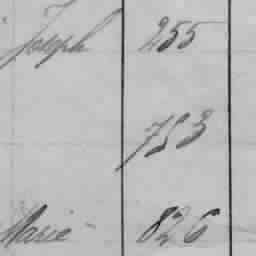 Joseph 255
753
Marie 826